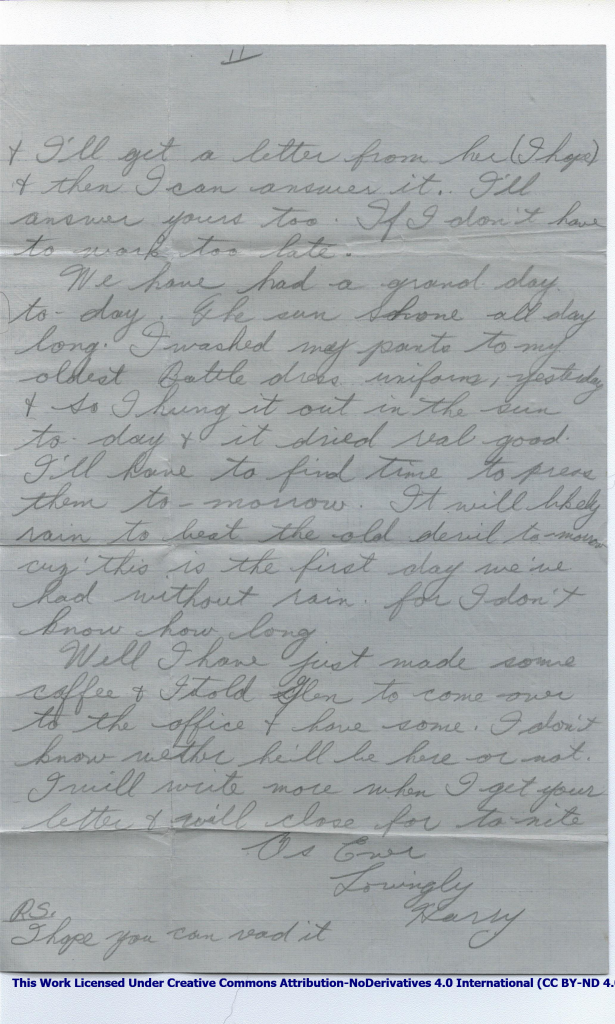 11
& I'll get a letter from her (I hope)
& then I can answer it.. I'll
answer yours too. If I don't have
to work too late.
We have had a grand day
to-day. The sun shone all day
long. I washed my pants to my
oldest Battle dress uniform, yesterday
& so I hung it out in the sun
to-day & it dried real good.
I'll have to find time to press
them to-morrow. It will likely
rain to beat the old devil to-morrow
cuz' this is the first day we've
had without rain. for I don't
know how long
Well I have just made some
coffee & I told Glen to come over
to the office & have some. I don't
know wether he'll be here or not.
I will write more when I get your
letter & will close for to-nite
As Ever
Lovingly
Harry
P.S.
I hope you can read it
This Work Licensed Under Creative Commons Attribution-NoDerivatives 4.0 International (CC BY-ND 4.0